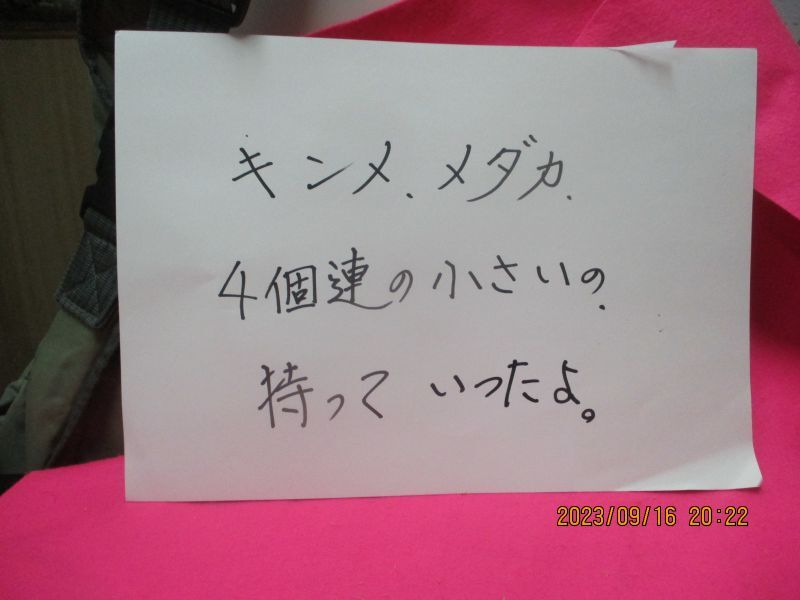 キンメ、メダカ、
4個連の小さいの、
持っていったよ。
2023/09/16 20:22